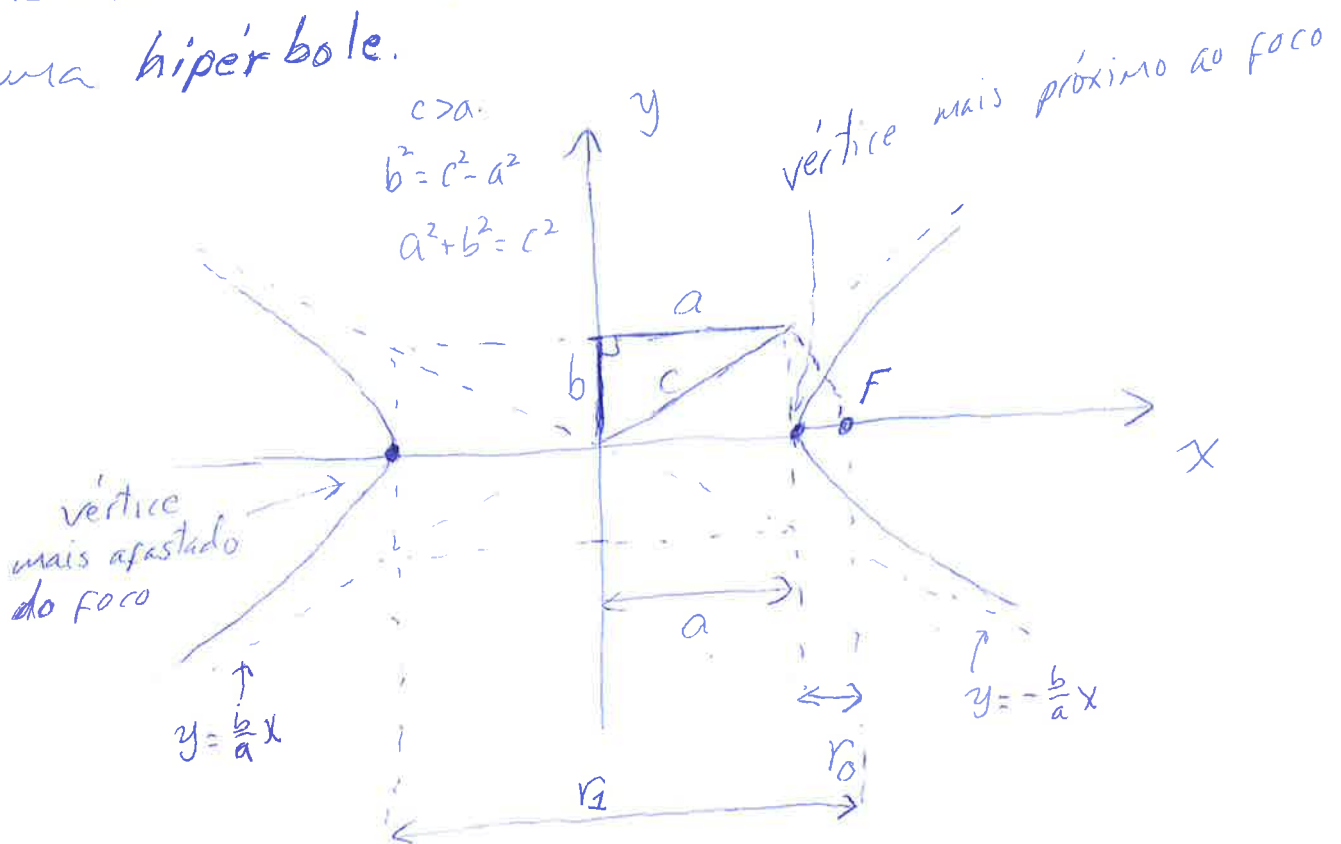 uma hipérbole.
c>a.
b² = c² - a²
a² + b² = c²
y
vértice mais próximo ao foco
a
b
c
F
x
vértice
mais afastado
do foco
a
y = b/a x
y = - b/a x
r₀
r₁